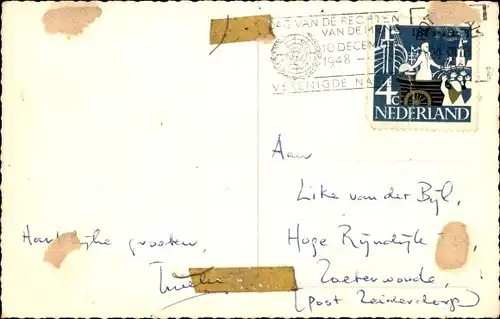 DAG VAN DE RECHTEN
VAN DE M
10 DECEM
1948 –
VERENIGDE NA
4
4c
NEDERLAND
Aan
Like van der Bijl,
Hoge Rijndijk
Zoeterwoude,
(post Leiderdorp)
Hartelijke groeten,